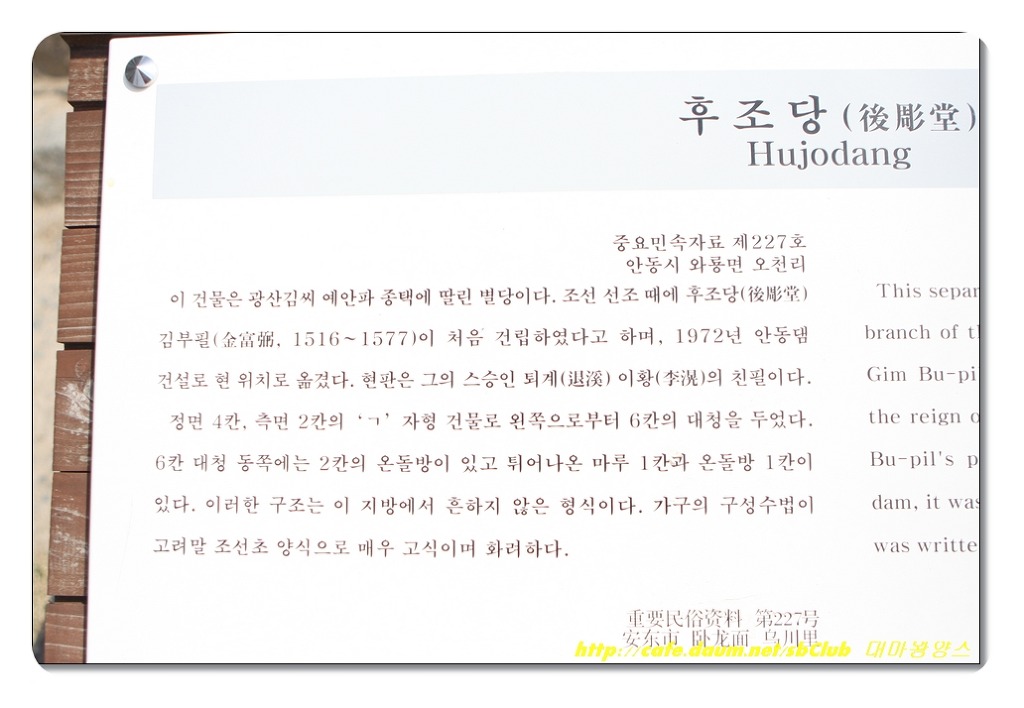 후조당(後彫堂)
Hujodang
중요민속자료 제227호
안동시 와룡면 오천리
이 건물은 광산김씨 예안파 종택에 딸린 별당이다. 조선 선조 때에 후조당(後彫堂)
김부필(金富弼, 1516~1577)이 처음 건립하였다고 하며, 1972년 안동댐
건설로 현 위치로 옮겼다. 현판은 그의 스승인 퇴계(退溪) 이황(李滉)의 친필이다.
정면 4칸, 측면 2칸의 ‘ㄱ’ 자형 건물로 왼쪽으로부터 6칸의 대청을 두었다.
6칸 대청 동쪽에는 2칸의 온돌방이 있고 튀어나온 마루 1칸과 온돌방 1칸이
있다. 이러한 구조는 이 지방에서 흔하지 않은 형식이다. 가구의 구성수법이
고려말 조선초 양식으로 매우 고식이며 화려하다.
This separ
branch of t
Gim Bu-pi
the reign o
Bu-pil's p
dam, it was
was writte
重要民俗资料 第227号
安东市 卧龙面 乌川里
http://cafe.daum.net/sbClub 대마왕양스